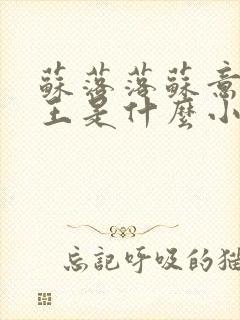 蘇落落蘇意
王是什麼小
忘記呼吸的貓